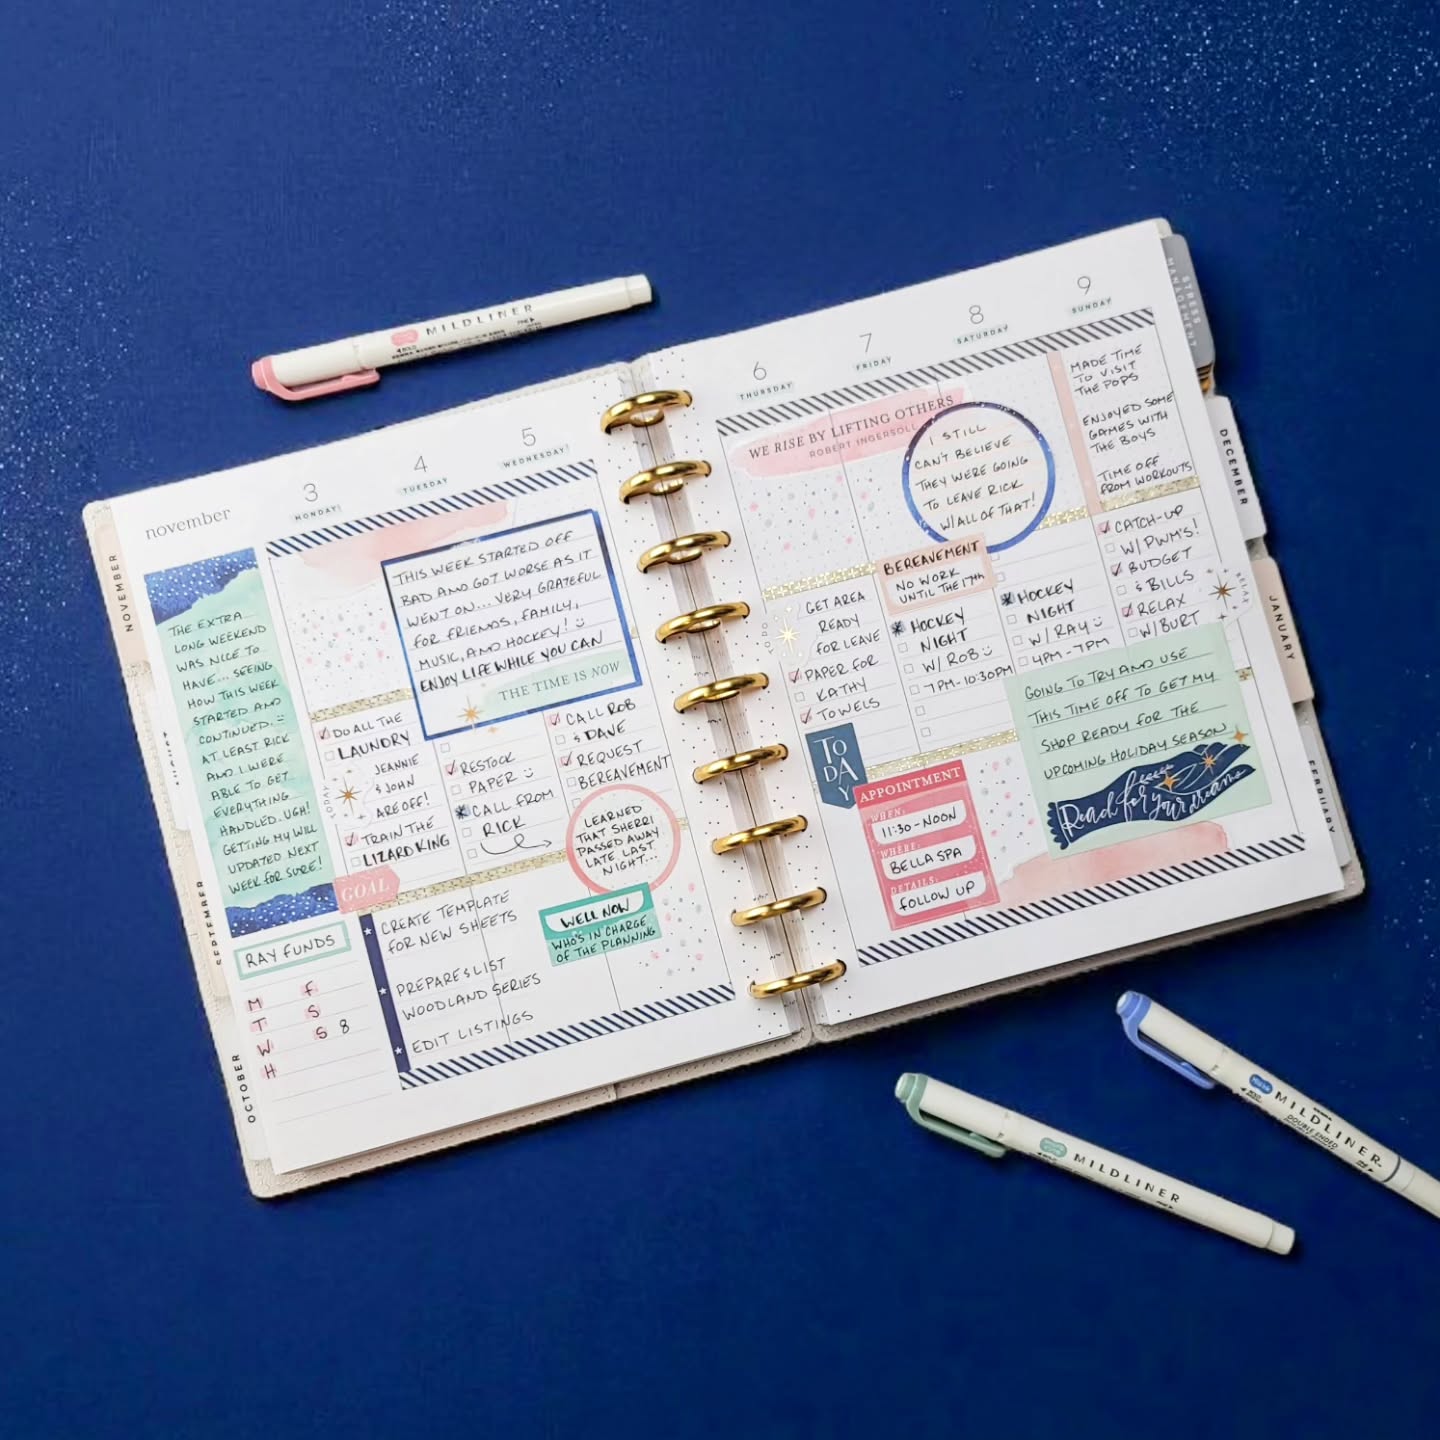 MILDLINER
november
3
MONDAY!
4
TUESDAY
5
WEDNESDAY!
THE EXTRA
LONG WEEKEND
WAS NICE TO
HAVE... SEEING
HOW THIS WEEK
STARTED AND
CONTINUED. :)
AT LEAST RICK
AND I WERE
ABLE TO GET
EVERYTHING
HANDLED. UGH!
GETTING MY WILL
UPDATED NEXT
WEEK FOR SURE!
RAY FUNDS
M F
T S
W S 8
H
THIS WEEK STARTED OFF
BAD AND GOT WORSE AS IT
WENT ON... VERY GRATEFUL
FOR FRIENDS, FAMILY,
MUSIC, AND HOCKEY! :)
ENJOY LIFE WHILE YOU CAN
THE TIME IS NOW
DO ALL THE
LAUNDRY
TODAY
JEANNIE
& JOHN
ARE OFF!
TRAIN THE
LIZARD KING
RESTOCK
PAPER :)
CALL FROM
RICK
CALL ROB
& DAVE
REQUEST
BEREAVEMENT
LEARNED
THAT SHERRI
PASSED AWAY
LATE LAST
NIGHT...
GOAL
CREATE TEMPLATE
FOR NEW SHEETS
PREPARE & LIST
WOODLAND SERIES
EDIT LISTINGS
WELL NOW
WHO'S IN CHARGE
OF THE PLANNING
6
THURSDAY
7
FRIDAY
8
SATURDAY
9
SUNDAY
WE RISE BY LIFTING OTHERS
ROBERT INGERSOLL
I STILL
CAN'T BELIEVE
THEY WERE GOING
TO LEAVE RICK
W/ALL OF THAT!
MADE TIME
TO VISIT
THE POPS
ENJOYED SOME
GAMES WITH
THE BOYS
TIME OFF
FROM WORKOUTS
GET AREA
READY
FOR LEAVE
PAPER FOR
KATHY
TOWELS
BEREAVEMENT
NO WORK
UNTIL THE 17TH
HOCKEY
NIGHT
W/ ROB :)
7PM-10:30PM
HOCKEY
NIGHT
W/ RAY :)
4PM-7PM
CATCH-UP
W/ PWM'S!
BUDGET
& BILLS
RELAX
W/BURT
RELAX
TODAY
APPOINTMENT
WHEN:
11:30-NOON
WHERE:
BELLA SPA
DETAILS:
FOLLOW UP
GOING TO TRY AND USE
THIS TIME OFF TO GET MY
SHOP READY FOR THE
UPCOMING HOLIDAY SEASON
Reach for your dreams
NOVEMBER
AUGUST
SEPTEMBER
OCTOBER
STRESS
MANAGEMENT
DECEMBER
JANUARY
FEBRUARY
MILDLINER
MILDLINER
DOUBLE ENDED